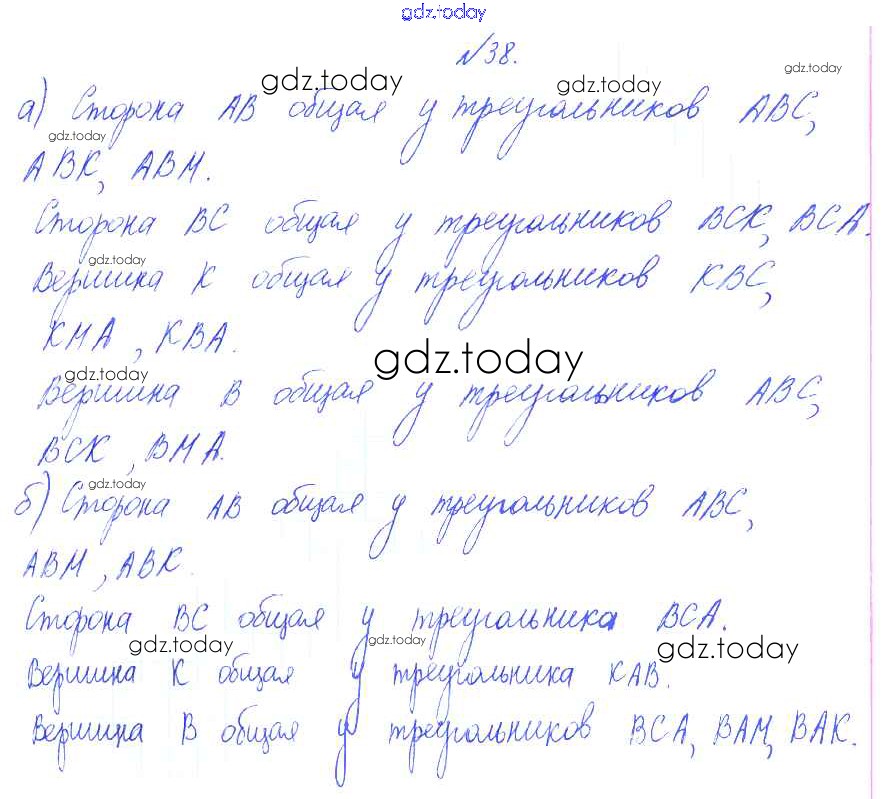 gdz.today
№38.
gdz.today gdz.today gdz.today
а) Сторона АВ общая у треугольников АВС,
gdz.today
АВК, АВМ.
Сторона ВС общая у треугольников ВСК, ВСА.
gdz.today
Вершина К общая у треугольников КВС,
КМА, КВА.
gdz.today
gdz.today
Вершина В общая у треугольников АВС,
ВСК, ВМА.
gdz.today
б) Сторона АВ общая у треугольников АВС,
АВМ, АВК.
Сторона ВС общая у треугольника ВСА.
gdz.today gdz.today gdz.today
Вершина К общая у треугольника КАВ.
Вершина В общая у треугольников ВСА, ВАМ, ВАК.